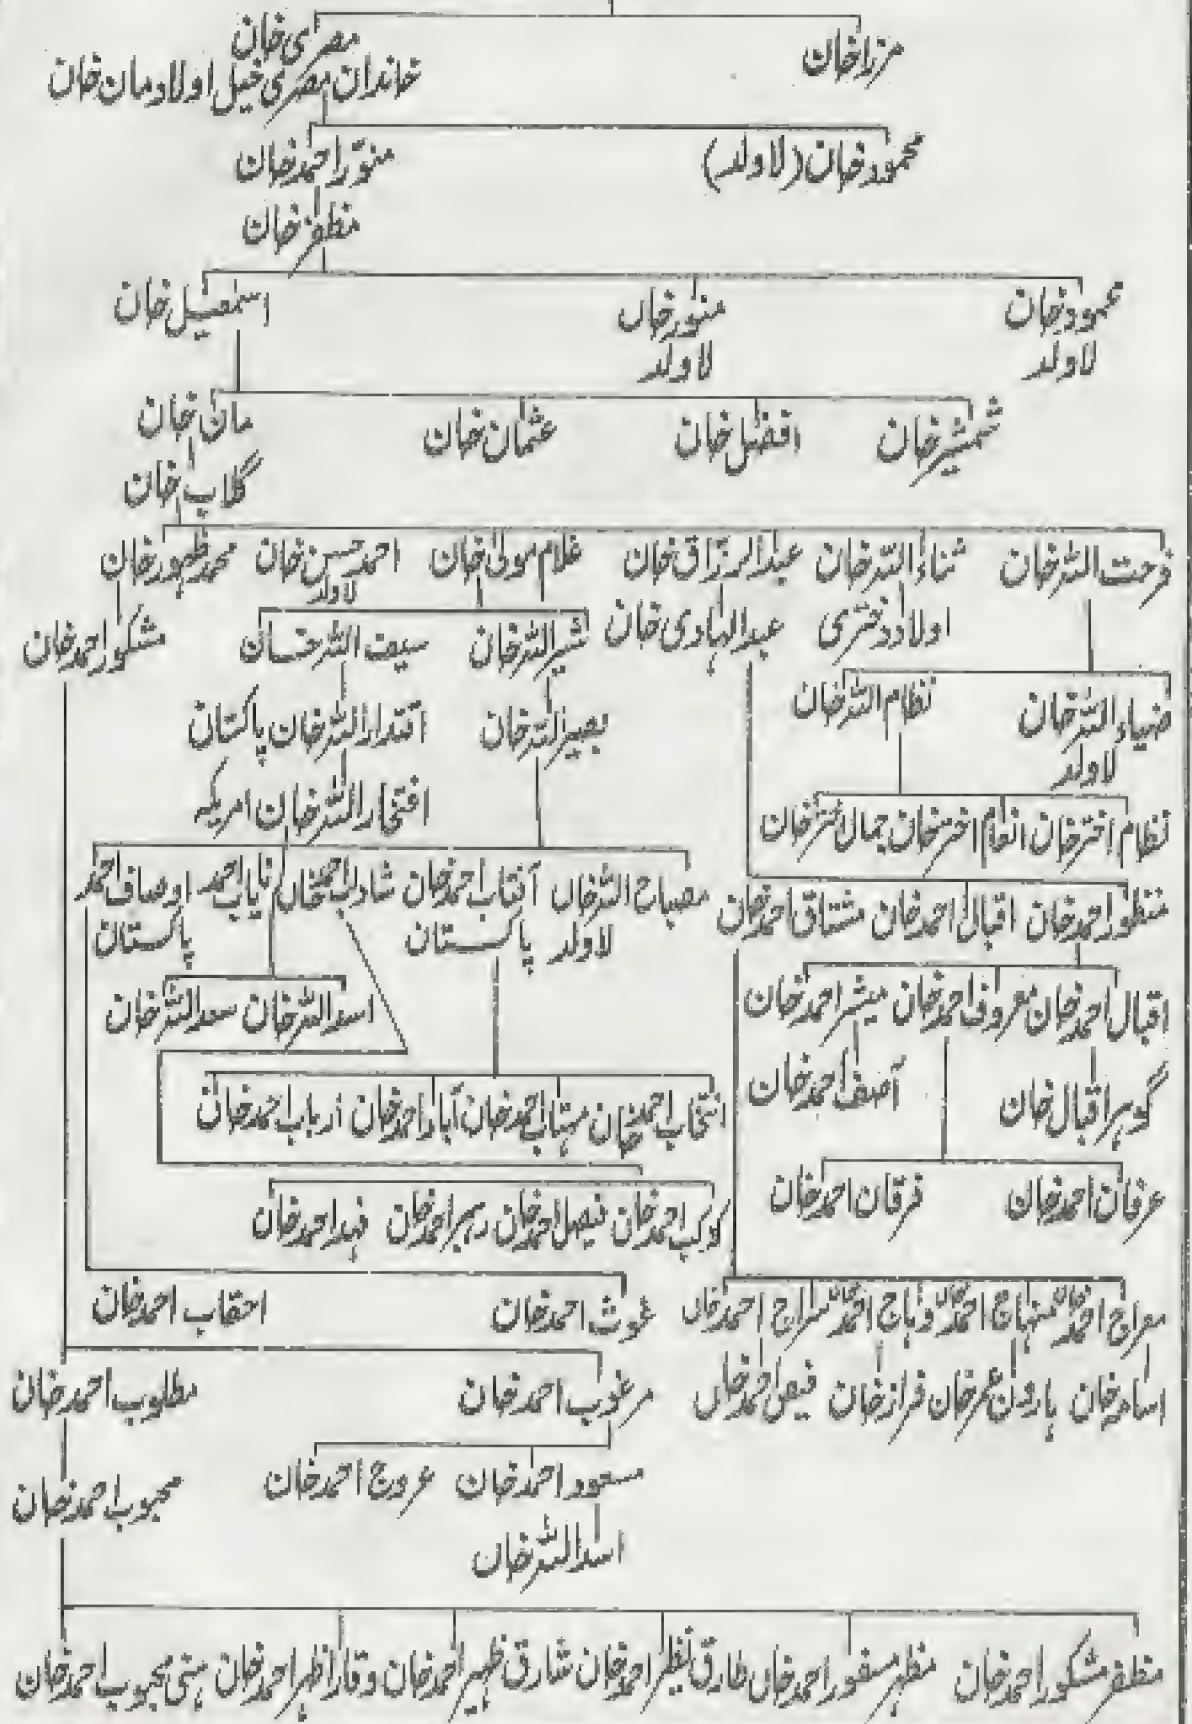 مرزا خان مصری خان
خاندان مصری خیل اولاد مان خان
محمود خان (لاولد) منور احمد خان
مظفر خان
محمود خان منور خاں اسمعیل خان
لاولد لاولد
شمشیر خان افضل خان عثمان خان مان خان
گلاب خان
فرحت اللہ خان ثناء اللہ خان عبدالرزاق خان غلام مولیٰ خان احمد حسن خان محمد ظہور خان
اولاد دختری عبدالہادی خان شیر اللہ خان سیف اللہ خان لاولد مشکور احمد خان
ضیاء اللہ خان نظام اللہ خان بصیر اللہ خان اقتدار اللہ خان پاکستان
لاولد افتخار اللہ خان امریکہ
نظام اختر خان انعام اختر خان جمال اختر خان
مصباح اللہ خاں آفتاب احمد خان شاداب احمد خاں نایاب احمد اوصاف احمد
لاولد پاکستان پاکستان
منظور احمد خان اقبال احمد خان مشتاق احمد خان
اقبال احمد خان معروف احمد خان مبشر احمد خان اسد اللہ خان سعد اللہ خان
گوہر اقبال خان آصف احمد خان
انتخاب احمد خان مہتاب احمد خان آباد احمد خان ارباب احمد خان
عرفان احمد خان فرقان احمد خان
کوکب احمد خان فیصل احمد خان رہبر احمد خان فہد احمد خان
معراج احمد خاں منہاج احمد خاں وہاج احمد خاں سراج احمد خاں غوث احمد خان احقاب احمد خان
اسامہ خان ہارون عمر خان فراز خان فیصل احمد خاں مرغوب احمد خان مطلوب احمد خان
مسعود احمد خان عروج احمد خان محبوب احمد خان
اسد اللہ خان
مظفر مشکور احمد خان مظہر مسفور احمد خاں طارق نظر احمد خان شارق ظہیر احمد خان وقار اظہر احمد خان ہنی محبوب احمد خان